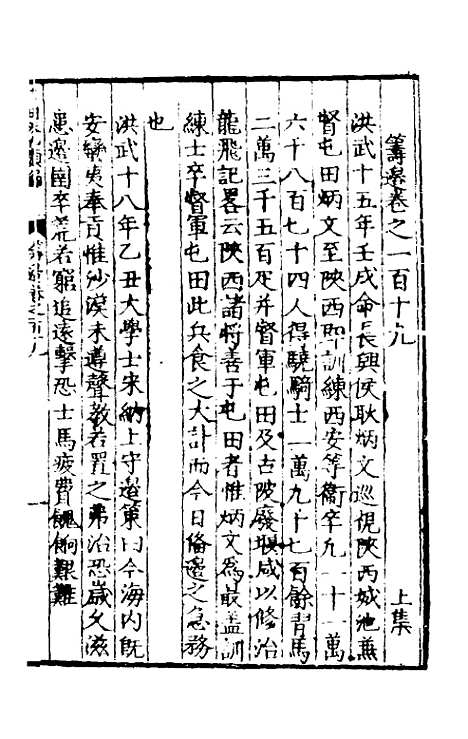 籌邊卷之一百十九
上集
洪武十五年壬戌命長興侯耿炳文巡視陝西城池兼
督屯田炳文至陝西即訓練西安等衞卒凡一十一萬
六千八百七十四人得驍騎士一萬九十七百餘習馬
二萬三千五百疋并督軍屯田及古陂廢堰咸以修治
龍飛記畧云陝西諸將善于屯田者惟炳文為最盖訓
練士卒督軍屯田此兵食之大計而今日俻邊之急務
也
洪武十八年乙丑大學士宋納上守邊策曰今海内旣
安蠻夷奉貢惟沙漠未遵聲教若置之弗治恐歲久滋
患邊圉卒荒若窮追遠擊恐士馬疲費餽餉艱難